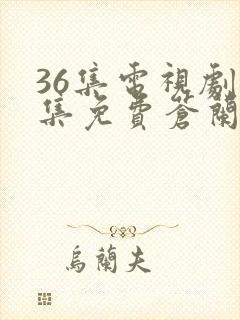 36集電視劇
集免費蒼蘭
烏蘭夫